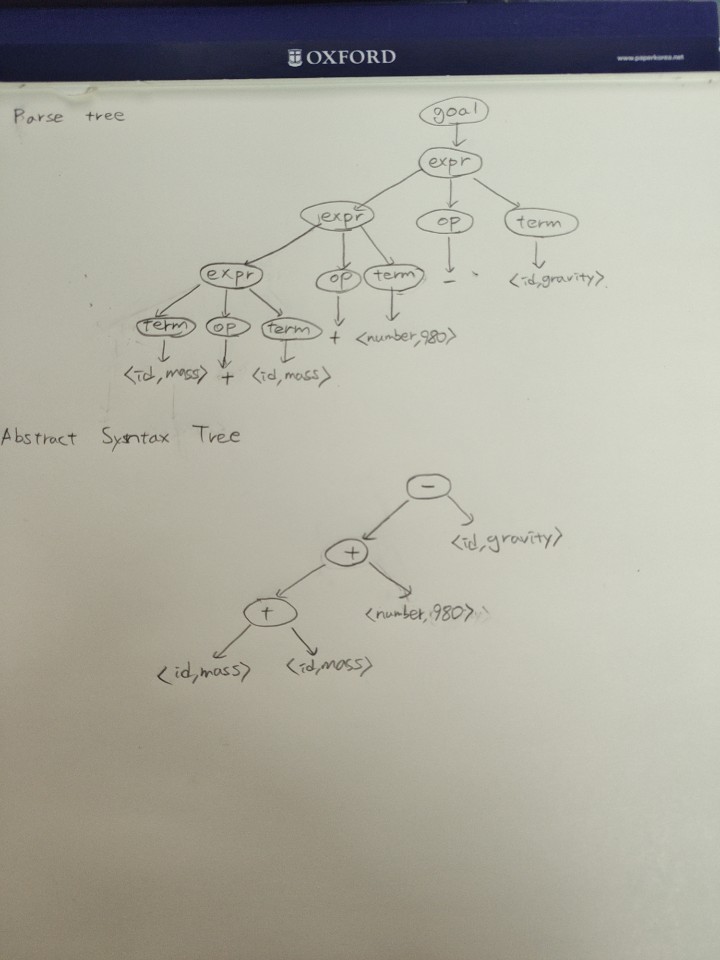 OXFORD
www.paperkorea.net
Parse tree
goal
expr
expr op term
expr op term - <id,gravity>
term op term + <number,980>
<id,mass> + <id,mass>
Abstract Syntax Tree
-
<id,gravity>
+
+ <number,980>
<id,mass> <id,mass>